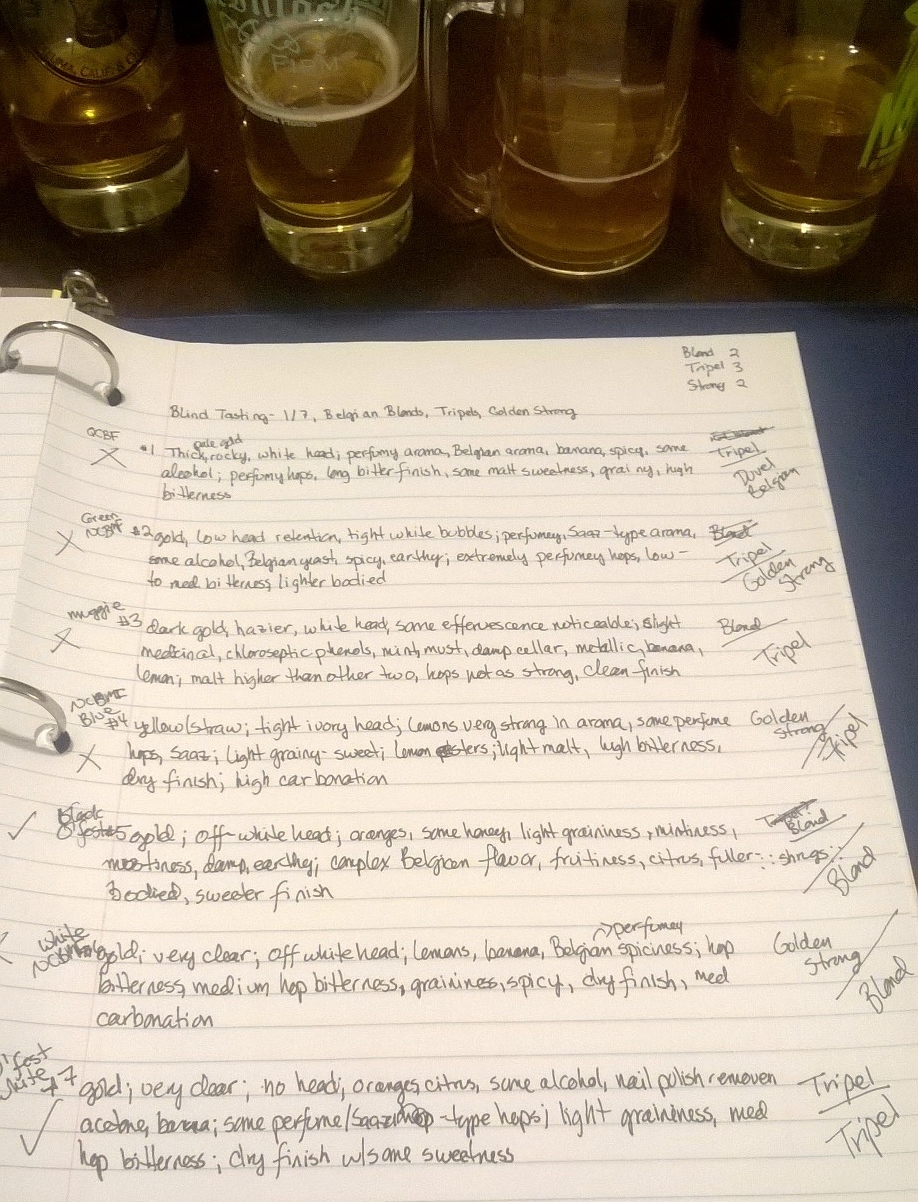 FIRM
Blond 2
Tripel 3
Strong 2
Blind Tasting - 1/7, Belgian Blonds, Tripels, Golden Strong
GCBF
pale gold
#1 Thick, rocky, white head; perfumy aroma, Belgian aroma, banana, spicy, some
alcohol; perfumy hops, long bitter finish, some malt sweetness, grainy, high
bitterness
Tripel
Duvel
Belgian
Green
NCBMF #2 gold, low head retention, tight white bubbles; perfumey, Saaz-type aroma,
some alcohol, Belgian yeast, spicy, earthy; extremely perfumey hops, low-
to med bitterness, lighter bodied
Blond
Tripel
Golden
Strong
muggie
#3 dark gold, hazier, white head, some effervescence noticeable; slight
medicinal, chloroseptic phenols, mint, must, damp cellar, metallic, banana,
lemon; malt higher than other two, hops not as strong, clean finish
Blond
Tripel
Blue
#4 yellow/straw; tight ivory head; lemons very strong in aroma, some perfume
hops, Saaz; light grainy-sweet; lemon esters; light malt, high bitterness,
dry finish; high carbonation
Golden
Strong
Tripel
Black
O'fest #5 gold; off-white head; oranges, some honey, light graininess, mintiness,
mustiness, damp, earthy; complex Belgian flavor, fruitiness, citrus, fuller-
bodied, sweeter finish
Blond
Blond
White
>perfumey
gold; very clear; off white head; lemons, banana, Belgian spiciness; hop
bitterness, medium hop bitterness, graininess, spicy, dry finish, med
carbonation
Golden
Strong
Blond
O'fest
White #7 gold; very clear; no head; oranges, citrus, some alcohol, nail polish remover
acetone, banana; some perfume/Saaz -type hops; light graininess, med
hop bitterness; dry finish w/some sweetness
Tripel
Tripel